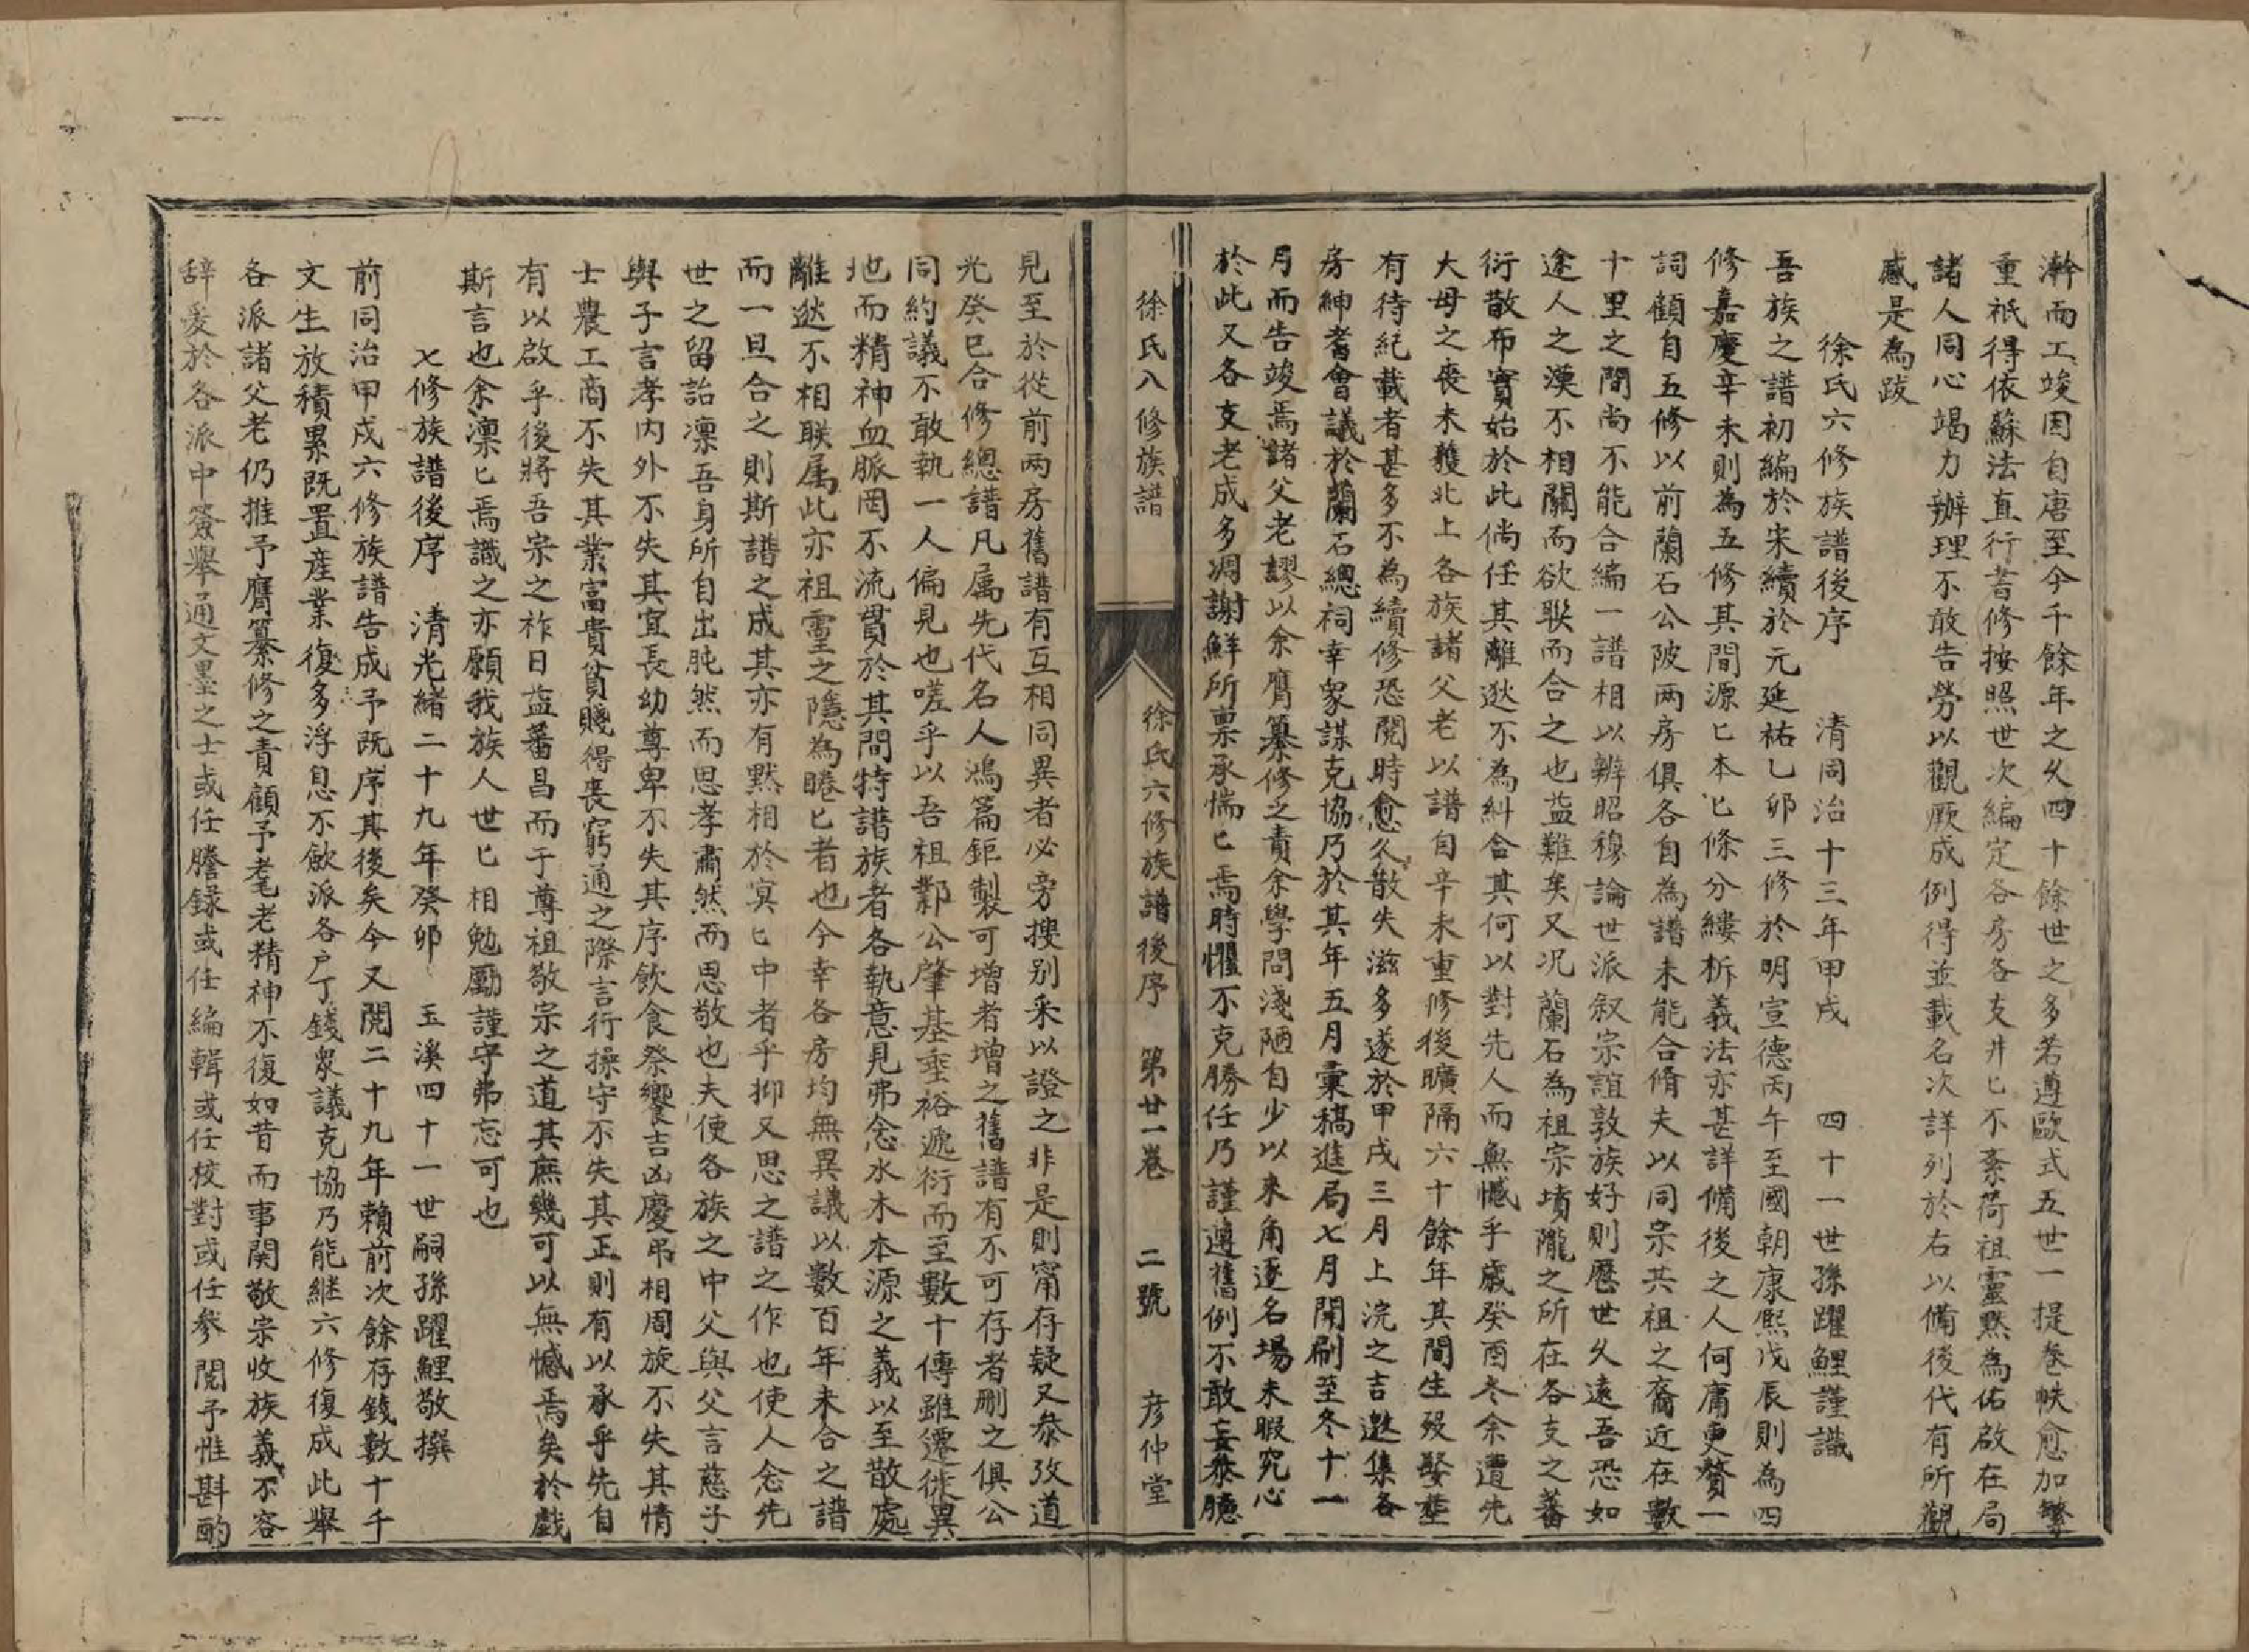 瀚而工竣因自唐至今千餘年之久四十餘世之多若遵歐式五世一提卷帙愈加繁
重祇得依蘇法直行書修按照世次編定各房各支井匕不紊荷祖靈黙為佑啟在局
諸人同心竭力辦理不敢告勞以觀厥成例得並載名次詳列於右以備後代有所觀
感是為跋
徐氏六修族譜後序　清同治十三年甲戌　四十一世孫躍鯉謹識
吾族之譜初編於宋續於元延祐乙卯三修於明宣德丙午至國朝康熙戊辰則為四
修嘉慶辛未則為五修其間源匕本匕條分縷析義法亦甚詳備後之人何庸更贅一
詞顧自五修以前蘭石公陂两房俱各自為譜未能合脩夫以同宗共祖之裔近在數
十里之間尚不能合編一譜相以辨昭穆論世派叙宗誼敦族好則歷世久遠吾恐如
途人之漠不相關而欲聯而合之也益難矣又况蘭石為祖宗墳隴之所在各支之蕃
衍散布實始於此倘任其離逖不為糾合其何以對先人而無憾乎歲癸酉冬余遭先
大母之喪未獲北上各族諸父老以譜自辛未重修後曠隔六十餘年其間生殁娶塟
有待紀載者甚多不為續修恐閱時愈久散失滋多遂於甲戌三月上浣之吉邀集各
房紳耆會議於蘭石總祠幸衆謀克協乃於其年五月彙稿進局七月開刷至冬十一
月而告竣焉諸父老謬以余膺纂修之責余學問淺陋自少以來角逐名場未暇究心
於此又各支老成多凋謝鮮所禀承惴匕焉時懼不克勝任乃謹遵舊例不敢妄叅臆
徐氏八修族譜　徐氏六修族譜後序　第廿一卷　二號　彦仲堂
見至於從前两房舊譜有互相同異者必旁搜别采以證之非是則甯存疑又叅攷道
光癸巳合修總譜凡属先代名人鴻篇鉅製可增者增之舊譜有不可存者删之俱公
同約議不敢執一人偏見也嗟乎以吾祖鄴公肇基垂裕遞衍而至數十傳雖遷徙異
地而精神血脈罔不流貫於其間特譜族者各執意見弗念水木本源之義以至散處
離逖不相聯属此亦祖靈之隱為睠匕者也今幸各房均無異議以數百年未合之譜
而一旦合之則斯譜之成其亦有黙相於冥匕中者乎抑又思之譜之作也使人念先
世之留詒凛吾身所自出肫然而思孝肅然而思敬也夫使各族之中父與父言慈子
與子言孝内外不失其宜長幼尊卑不失其序飲食祭饗吉凶慶弔相周旋不失其情
士農工商不失其業富貴貧賤得喪窮通之際言行操守不失其正則有以承乎先自
有以啟乎後將吾宗之祚日益蕃昌而于尊祖敬宗之道其庶幾可以無憾焉矣於戲
斯言也余凛匕焉識之亦願我族人世匕相勉勵謹守弗忘可也
七修族譜後序　清光緒二十九年癸卯　玉溪四十一世嗣孫躍鯉敬撰
前同治甲戌六修族譜告成予既序其後矣今又閱二十九年賴前次餘存錢數十千
文生放積累既置産業復多浮息不歛派各户丁錢衆議克協乃能継六修復成此舉
各派諸父老仍推予膺纂修之責顧予耄老精神不復如昔而事関敬宗收族義不容
辞爰於各派中簽舉通文墨之士或任謄錄或任編輯或任校對或任參閱予惟斟酌